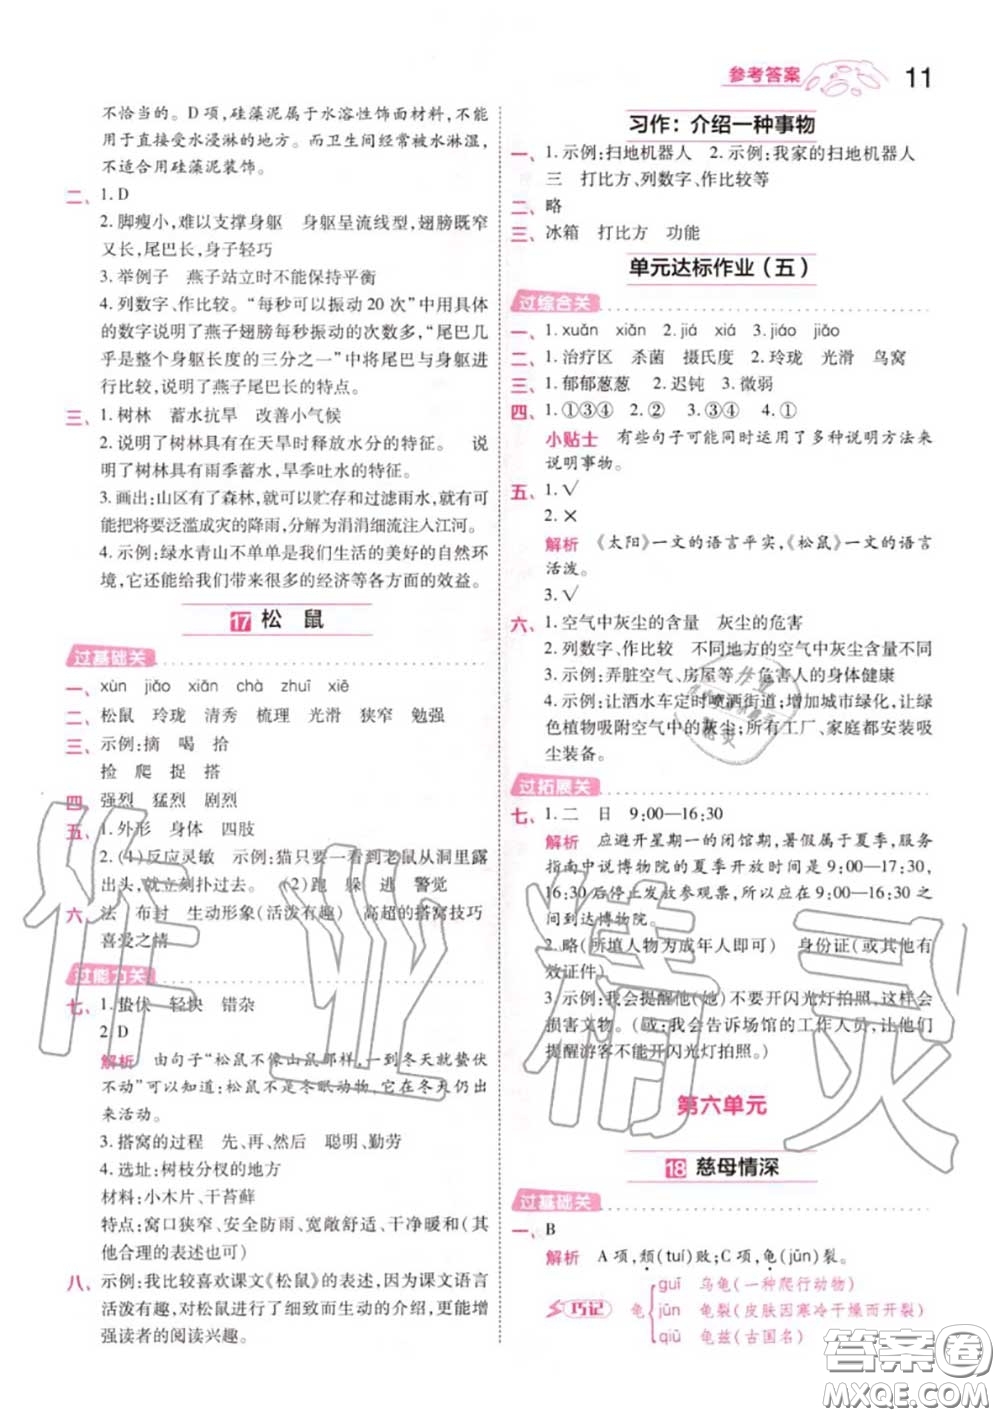 参考答案 11
不恰当的。D 项,硅藻泥属于水溶性饰面材料,不能
用于直接受水浸淋的地方。而卫生间经常被水淋湿,
不适合用硅藻泥装饰。
二、1. D
2. 脚瘦小,难以支撑身躯 身躯呈流线型,翅膀既窄
又长,尾巴长,身子轻巧
3. 举例子 燕子站立时不能保持平衡
4. 列数字、作比较。“每秒可以振动 20 次”中用具体
的数字说明了燕子翅膀每秒振动的次数多,“尾巴几
乎是整个身躯长度的三分之一”中将尾巴与身躯进
行比较,说明了燕子尾巴长的特点。
三、1. 树林 蓄水抗旱 改善小气候
2. 说明了树林具有在天旱时释放水分的特征。 说
明了树林具有雨季蓄水,旱季吐水的特征。
3. 画出:山区有了森林,就可以贮存和过滤雨水,就有可
能把将要泛滥成灾的降雨,分解为涓涓细流注入江河。
4. 示例:绿水青山不单单是我们生活的美好的自然环
境,它还能给我们带来很多的经济等各方面的效益。
17 松 鼠
过基础关
一、xùn jiǎo xiān chà zhuī xiē
二、松鼠 玲珑 清秀 梳理 光滑 狭窄 勉强
三、示例:摘 喝 拾
捡 爬 捉 搭
四、强烈 猛烈 剧烈
五、1. 外形 身体 四肢
2. (1)反应灵敏 示例:猫只要一看到老鼠从洞里露
出头,就立刻扑过去。 (2)跑 躲 逃 警觉
六、法 布封 生动形象(活泼有趣) 高超的搭窝技巧
喜爱之情
过能力关
七、1. 蛰伏 轻快 错杂
2. D
解析 由句子“松鼠不像山鼠那样,一到冬天就蛰伏
不动”可以知道:松鼠不是冬眠动物,它在冬天仍出
来活动。
3. 搭窝的过程 先、再、然后 聪明、勤劳
4. 选址:树枝分杈的地方
材料:小木片、干苔藓
特点:窝口狭窄、安全防雨、宽敞舒适、干净暖和(其
他合理的表述也可)
八、示例:我比较喜欢课文《松鼠》的表述,因为课文语言
活泼有趣,对松鼠进行了细致而生动的介绍,更能增
强读者的阅读兴趣。
习作：介绍一种事物
一、1. 示例:扫地机器人 2. 示例:我家的扫地机器人
三 打比方、列数字、作比较等
二、略
三、冰箱 打比方 功能
单元达标作业（五）
过综合关
一、1. xuǎn xiǎn 2. jiá xiá 3. jiáo jiǎo
二、1. 治疗区 杀菌 摄氏度 2. 玲珑 光滑 鸟窝
三、1. 郁郁葱葱 2. 迟钝 3. 微弱
四、1. ①③④ 2. ② 3. ③④ 4. ①
小贴士 有些句子可能同时运用了多种说明方法来
说明事物。
五、1. √
2. ×
解析 《太阳》一文的语言平实,《松鼠》一文的语言
活泼。
3. √
六、1. 空气中灰尘的含量 灰尘的危害
2. 列数字、作比较 不同地方的空气中灰尘含量不同
3. 示例:弄脏空气、房屋等,危害人的身体健康
4. 示例:让洒水车定时喷洒街道;增加城市绿化,让绿
色植物吸附空气中的灰尘;所有工厂、家庭都安装吸
尘装备。
过拓展关
七、1. 二 日 9:00—16:30
解析 应避开星期一的闭馆期,暑假属于夏季,服务
指南中说博物院的夏季开放时间是 9:00—17:30,
16:30 后停止发放参观票,所以应在 9:00—16:30 之
间到达博物院。
2. 略(所填人物为成年人即可) 身份证(或其他有
效证件)
3. 示例:我会提醒他(她)不要开闪光灯拍照,这样会
损害文物。(或:我会告诉场馆的工作人员,让他们
提醒游客不能开闪光灯拍照。)
第六单元
18 慈母情深
过基础关
一、B
解析 A 项,颓(tuí)败;C 项,龟(jūn)裂。
巧记 龟
guī 乌龟(一种爬行动物)
jūn 龟裂(皮肤因寒冷干燥而开裂)
qiū 龟兹(古国名)
作业精灵
答案圈
MXQE.COM